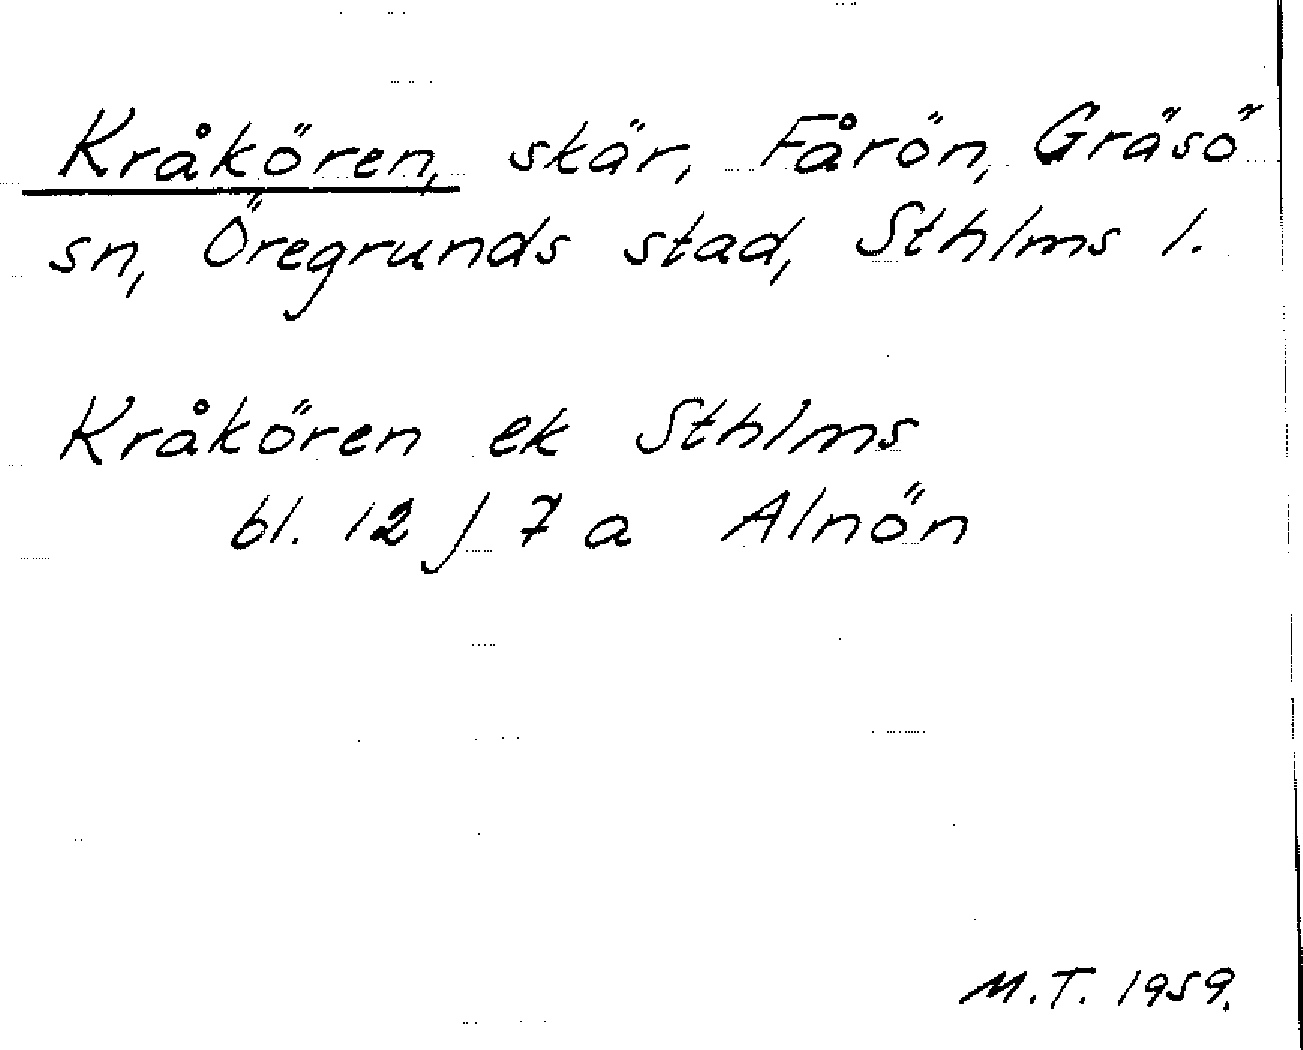 Kråkören, skär, Fårön, Gräsö
sn, Öregrunds stad, Sthlms l.
Kråkören ek Sthlms
bl. 12 J 7 a Alnön
M.T. 1959.